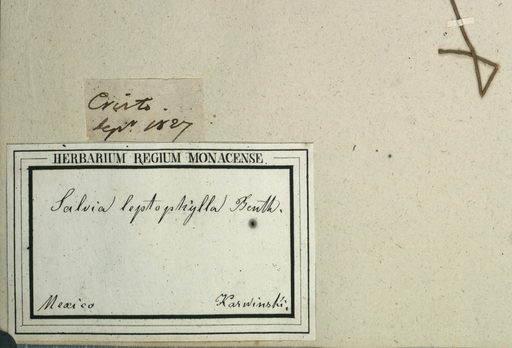 Cristo.
Sept. 1827
HERBARIUM REGIUM MONACENSE.
Salvia leptophylla Benth.
Mexico Karwinski.